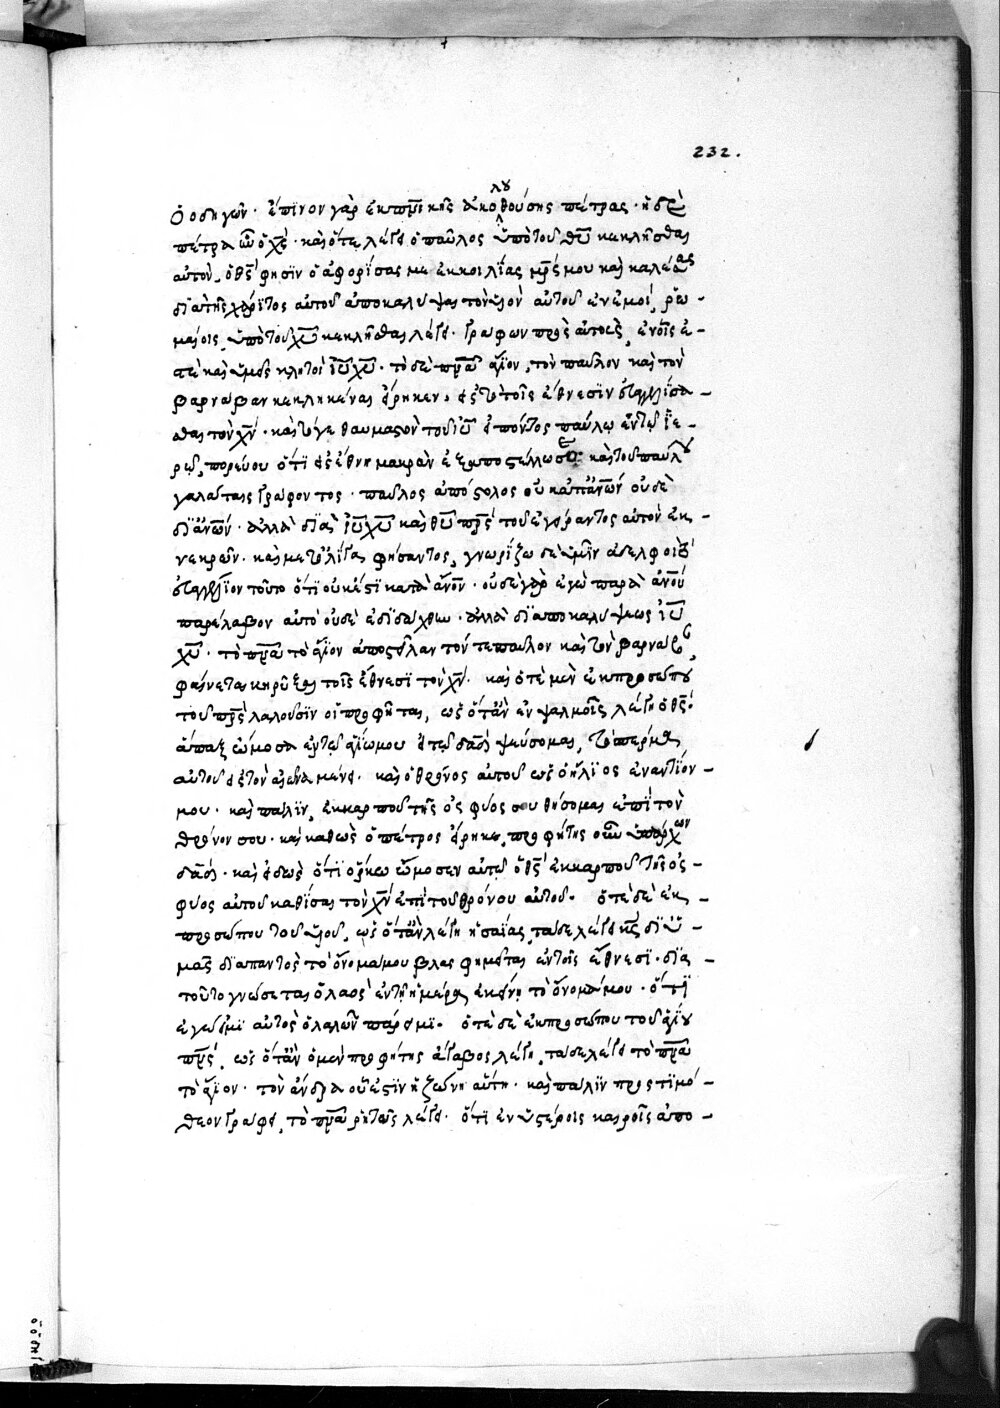 232.
ὁ ὁδηγῶν· ἔπινον γὰρ ἐκ πν̅ικῆς ἀκολουθούσης πέτρας· ἡ δὲ
πέτρα ἦν ὁ χς̅· καὶ ὅτε λέγει ὁ παῦλος ὑπὸ τοῦ θυ̅ κεκλῆσθαι
αὐτόν, ὁ θς̅ φησὶν ὁ ἀφορίσας με ἐκ κοιλίας μρς̅ μου καὶ καλέσας
διὰ τῆς χάριτος αὐτοῦ ἀποκαλύψαι τὸν υἱὸν αὐτοῦ ἐν ἐμοί, ῥω-
μαίοις ὑπὸ τοῦ χυ̅ κεκλῆσθαι λέγει· γράφων πρὸς αὐτούς, ἐν οἷς ἐ-
στὲ καὶ ὑμεῖς κλητοὶ ιυ̅ χυ̅· τὸ δὲ πνα̅ ἅγιον, τὸν παῦλον καὶ τὸν
βαρνάβαν κεκληκέναι εἴρηκεν, εἰς τὸ τοῖς ἔθνεσιν εὐαγγελίσα-
σθαι τὸν χν̅· καὶ τό γε θαυμαστὸν τοῦ ιυ̅ εἰπόντος παύλω ἐν τῶ ἱε-
ρῶ, πορεύου ὅτι εἰς ἔθνη μακρὰν ἐξαποστέλλω σε· καὶ τοῦ παύλου
γαλάταις γράφοντος· παῦλος ἀπόστολος οὐκ ἀπ' ἀνων̅ οὐδὲ
δι' ανων̅· ἀλλὰ διὰ ιυ̅ χυ̅ καὶ θυ̅ πρς̅ τοῦ ἐγείραντος αὐτὸν ἐκ
νεκρῶν· καὶ μετ' ὀλίγα φήσαντος, γνωρίζω δὲ ὑμῖν ἀδελφοὶ τὸ
εὐαγγέλιον τοῦτο ὅτι οὐκ ἔστι κατὰ ανον̅· οὐδὲ γὰρ ἐγὼ παρὰ ανου̅
παρέλαβον αὐτὸ οὐδὲ ἐδιδάχθην· ἀλλὰ δι' ἀποκαλύψεως ιυ̅
χυ̅· τὸ πνα̅ τὸ ἅγιον ἀποστεῖλαν τόν τε παῦλον καὶ τὸν βαρνάβαν,
φαίνεται κηρῦξαι τοῖς ἔθνεσι τὸν χν̅· καὶ ὁτὲ μὲν ἐκ προσώπου
τοῦ πρς̅ λαλοῦσιν οἱ προφῆται, ὡς ὅτ' ἂν ἐν ψαλμοῖς λέγη ὁ θς̅·
ἅπαξ ὤμοσα ἐν τῶ ἁγίω μου εἰ τῶ δαδ̅ ψεύσομαι, τὸ σπέρμα
αὐτοῦ εἰς τὸν αἰῶνα μένει· καὶ ὁ θρόνος αὐτοῦ ὡς ὁ ἥλιος ἐναντίον
μου· καὶ πάλιν, ἐκ καρποῦ τῆς ὀσφύος σου θήσομαι ἐπὶ τὸν
θρόνον σου· καὶ καθὼς ὁ πέτρος εἴρηκε, προφήτης οὖν ὑπάρχων
δαδ̅· καὶ εἰδὼς ὅτι ὅρκω ὤμοσεν αὐτῶ ὁ θς̅ ἐκ καρποῦ τῆς ὀσ-
φύος αὐτοῦ καθίσαι τὸν χν̅ ἐπὶ τοῦ θρόνου αὐτοῦ· ὁτὲ δὲ ἐκ
προσώπου τοῦ υἱοῦ, ὡς ὅτ' ἂν λέγη ἡσαΐας, τάδε λέγει κς̅ δι' ὑ-
μᾶς διαπαντὸς τὸ ὄνομά μου βλασφημεῖται ἐν τοῖς ἔθνεσι· διὰ
τοῦτο γνώσεται ὁ λαὸς ἐν τῆ ἡμέρα ἐκείνη τὸ ὄνομά μου· ὅτι
ἐγώ εἰμι αὐτὸς ὁ λαλῶν πάρειμι· ὁτὲ δὲ ἐκ προσώπου τοῦ ἁγίου
πνς̅, ὡς ὅτ' ἂν ὁ μὲν προφήτης ἄγαβος λέγη, τάδε λέγει τὸ πνα̅
τὸ ἅγιον· τὸν ἄνδρα οὗ ἐστὶν ἡ ζώνη αὕτη· καὶ πάλιν πρὸς τιμό-
θεον γράφει, τὸ πνα̅ ῥητῶς λέγει· ὅτι ἐν ὑστέροις καιροῖς ἀπο-